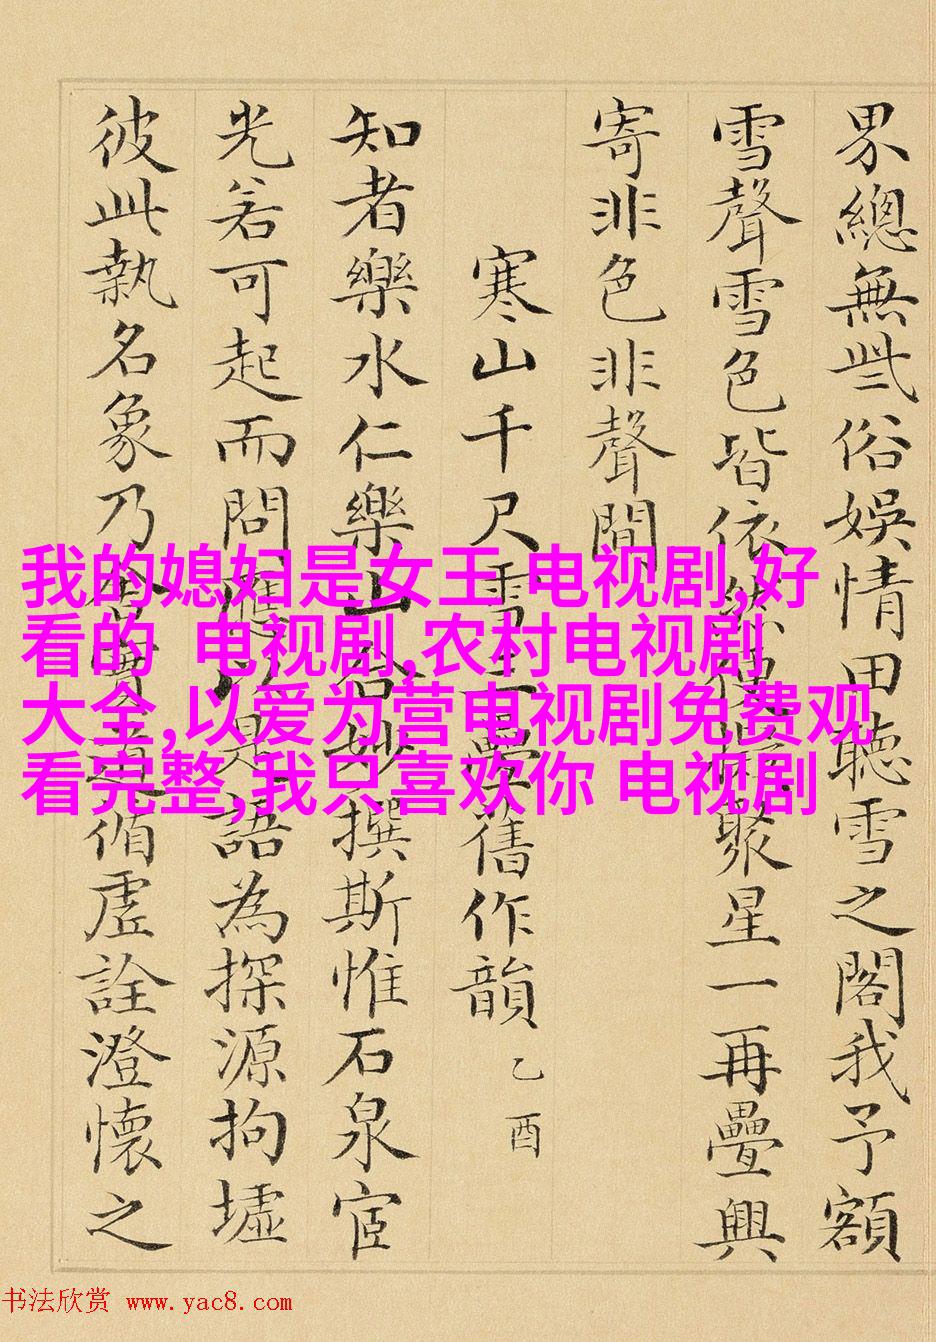 界總無些俗娛情田聽雪之閣我予額
雪聲雪色皆依聚星一再疊興
寄非色非聲間
寒山千尺雪三疊舊作韻 乙酉
知者樂水仁樂山撰斯惟石泉宦
光若可起而問應是語為探源拘墟
彼此執名象乃循虛詮澄懷之
我的媳妇是女王 电视剧,好
看的 电视剧,农村电视剧
大全,以爱为营电视剧免费观
看完整,我只喜欢你 电视剧
书法欣赏 www.yac8.com